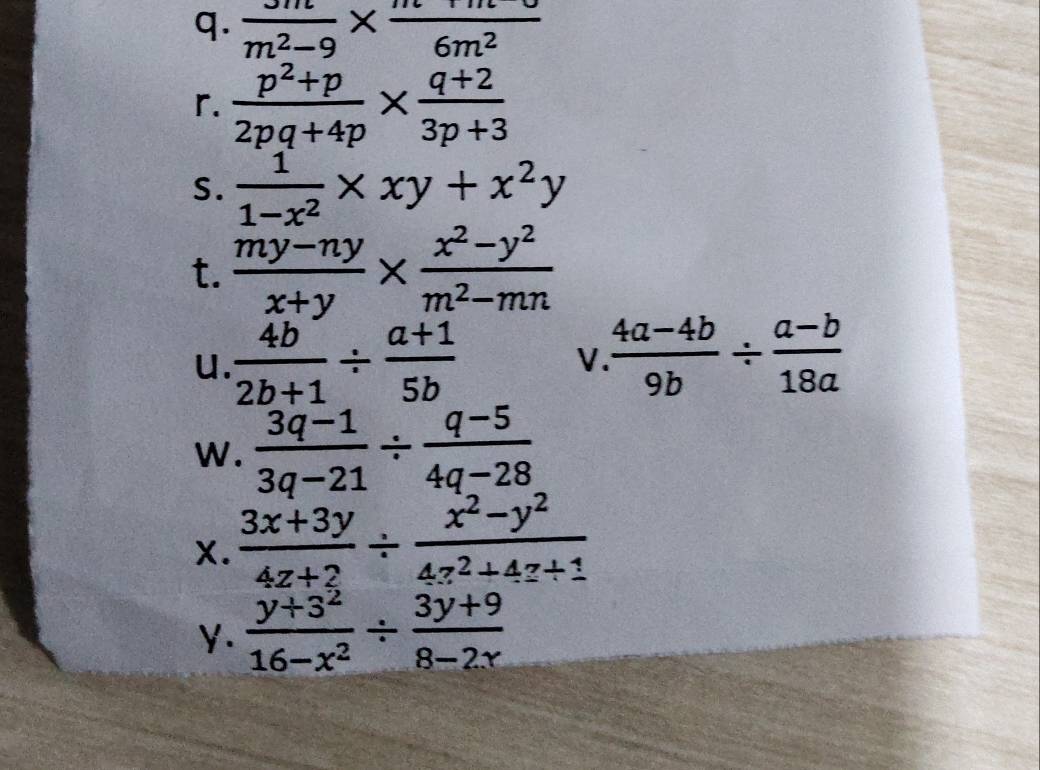 q. /(m²−9) × /6m²
r. (p²+p)/(2pq+4p) × (q+2)/(3p+3)
s. 1/(1−x²) × xy + x²y
t. (my−ny)/(x+y) × (x²−y²)/(m²−mn)
u. 4b/(2b+1) ÷ (a+1)/5b
v. (4a−4b)/9b ÷ (a−b)/18a
w. (3q−1)/(3q−21) ÷ (q−5)/(4q−28)
x. (3x+3y)/(4z+2) ÷ (x²−y²)/(4z²+4z+1)
y. (y+3²)/(16−x²) ÷ (3y+9)/(8−2x)